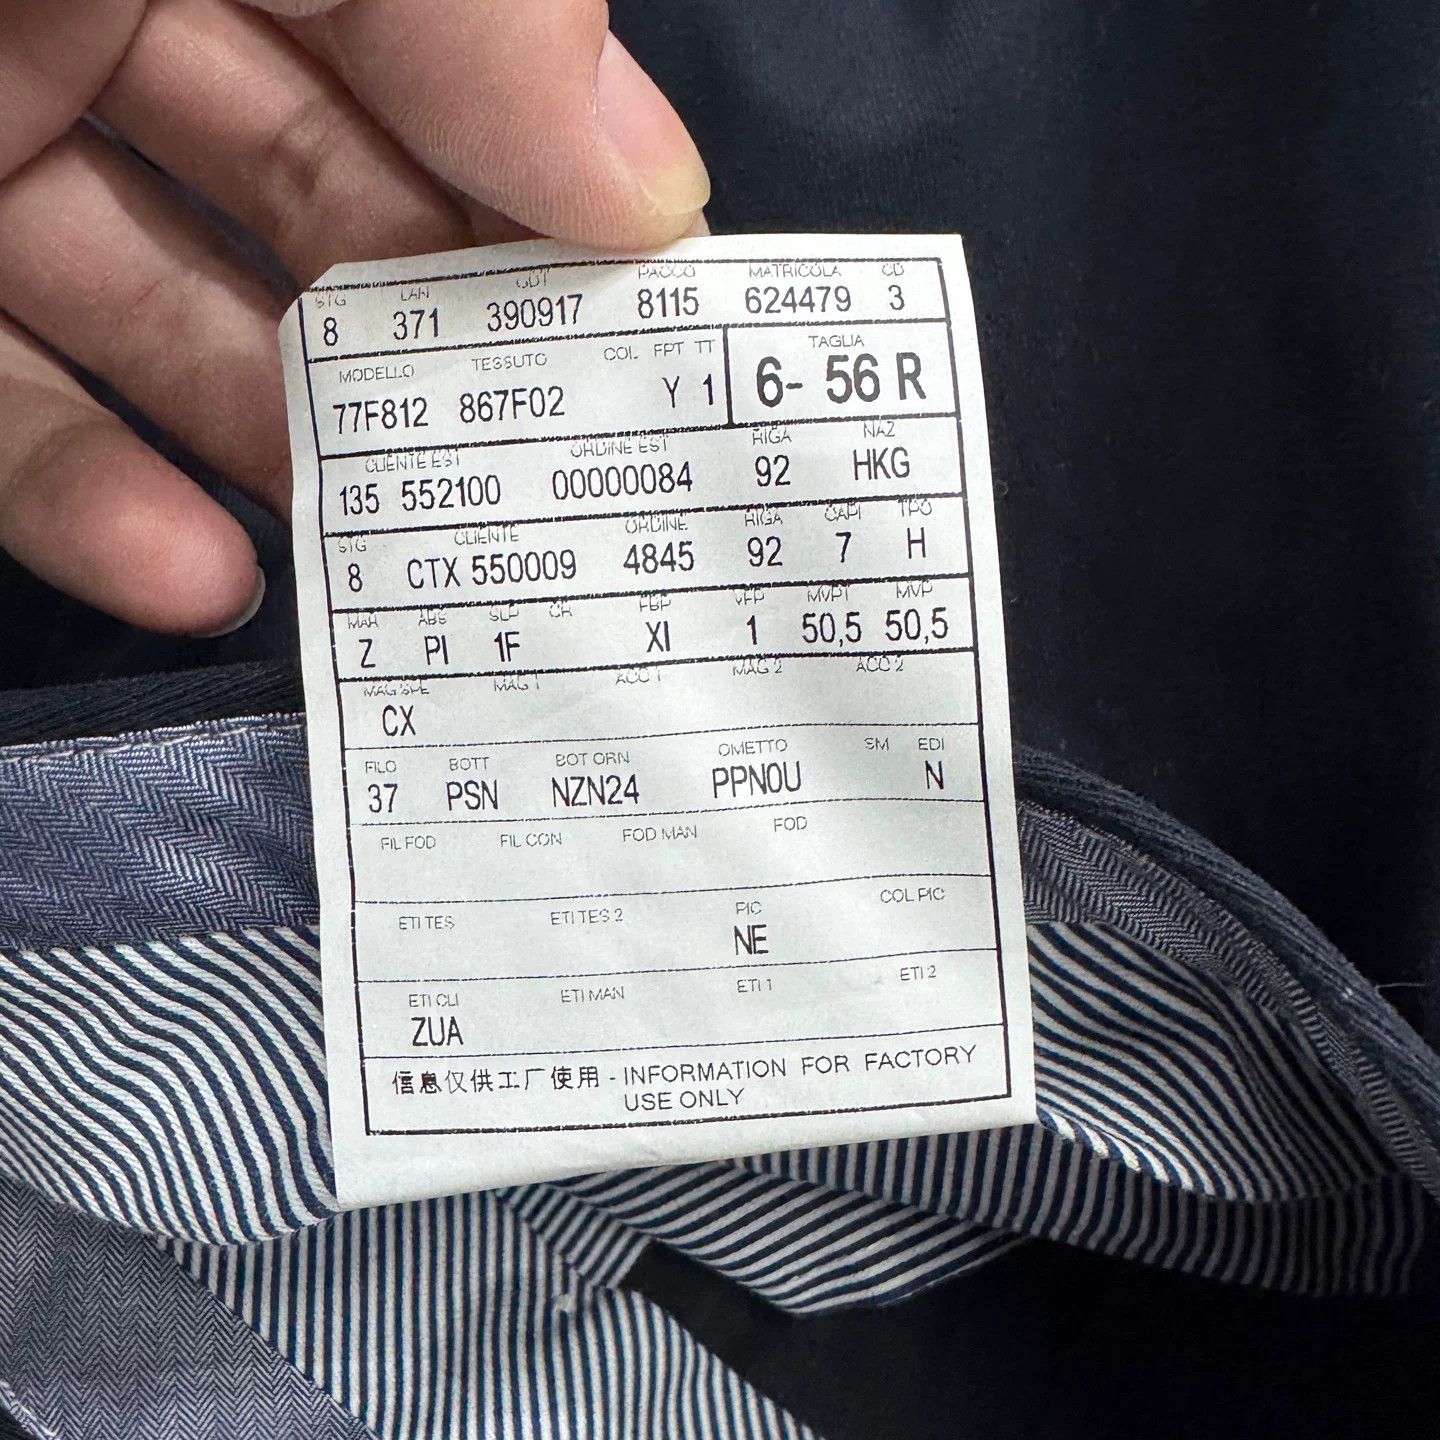 STG LAN CDT PACCO MATRICOLA CD
8 371 390917 8115 624479 3
MODELLO TESSUTO COL FPT TT TAGLIA
77F812 867F02 Y 1 6- 56 R
CLIENTE EST ORDINE EST RIGA NAZ
135 552100 00000084 92 HKG
STG CLIENTE ORDINE RIGA CAPI TPO
8 CTX 550009 4845 92 7 H
MAR ABS SLP CR FBP VFP MVPT MVP
Z PI 1F XI 1 50,5 50,5
MAG SPE MAG 1 ACC 1 MAG 2 ACC 2
CX
FILO BOTT BOT ORN OMETTO SM EDI
37 PSN NZN24 PPN0U N
FIL FOD FIL CON FOD MAN FOD
ETI TES ETI TES 2 PIC COL PIC
NE
ETI CLI ETI MAN ETI 1 ETI 2
ZUA
信息仅供工厂使用 - INFORMATION FOR FACTORY
USE ONLY